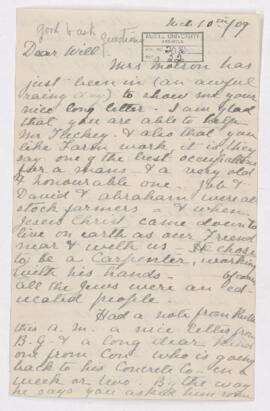 Oct. 10th/09
good & ask questions
McGILL UNIVERSITY
ARCHIVES
Dear Will,
Mrs Molson has
just been in (an awful
rainy day) to show me your
nice long letter - I am glad
that you are able to help
Mr & also that you
like Farm work it is they
say one of the best occupations
for a man - & a very old
& honourable one - Job &
David & Abraham were all
stock farmers - & when
Jesus Christ came down to
live on earth as our Friend
near & with us - He chose
to be a Carpenter, working
with his hands - of course
all the Jews were an ed-
ucated people.
Had a note from
this a.m. a nice letter from
B.G. & a long dear
one from Con. who is going
back to his Concrete Co - in a
week or two. By the way
he says you asked him some